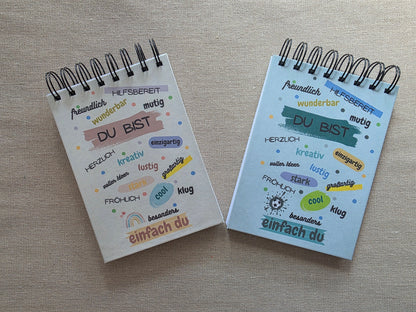 HILFSBEREIT
freundlich
wunderbar
mutig
DU BIST
HERZLICH
einzigartig
kreativ
voller Ideen
lustig
großartig
stark
FRÖHLICH
cool
klug
besonders
einfach du
HILFSBEREIT
freundlich
wunderbar
mutig
DU BIST
HERZLICH
einzigartig
kreativ
voller Ideen
lustig
großartig
stark
FRÖHLICH
cool
klug
besonders
einfach du